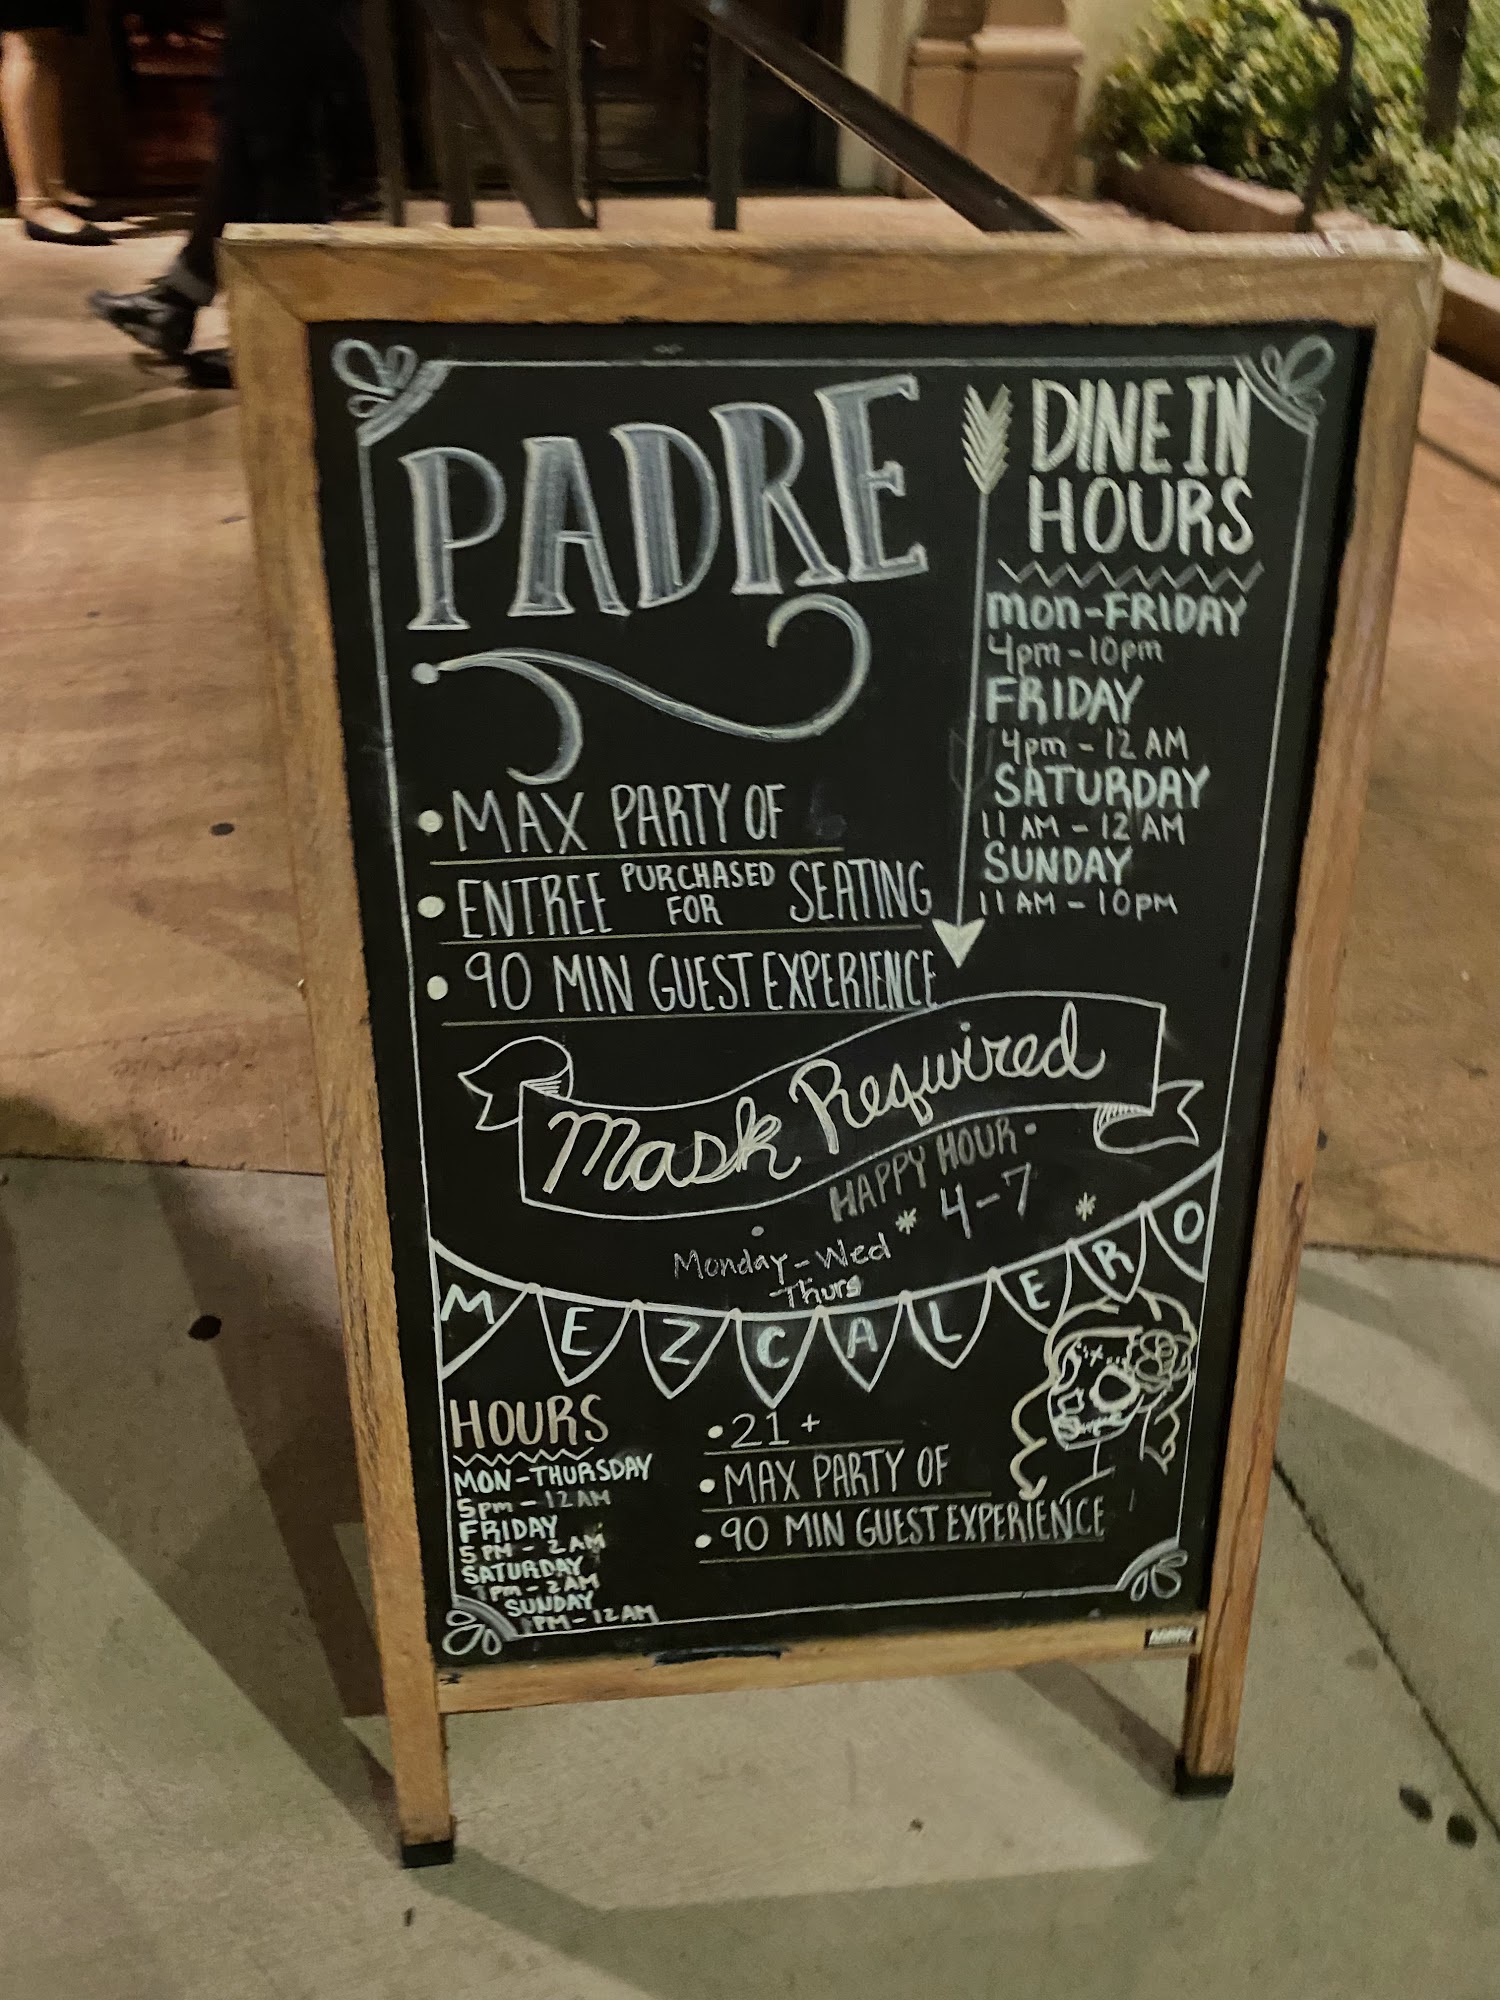 PADRE
• MAX PARTY OF
• ENTREE PURCHASED FOR SEATING
• 90 MIN GUEST EXPERIENCE
DINE IN
HOURS
mon-FRIDAY
4pm-10pm
FRIDAY
4pm - 12 AM
SATURDAY
11 AM - 12 AM
SUNDAY
11 AM - 10PM
Mask Required
HAPPY HOUR
* 4-7 *
Monday-Wed
Thurs
MEZCALERO
HOURS
MON-THURSDAY
5pm - 12AM
FRIDAY
5 PM - 2 AM
SATURDAY
1pm - 2AM
SUNDAY
PM - 12AM
• 21+
• MAX PARTY OF
• 90 MIN GUEST EXPERIENCE